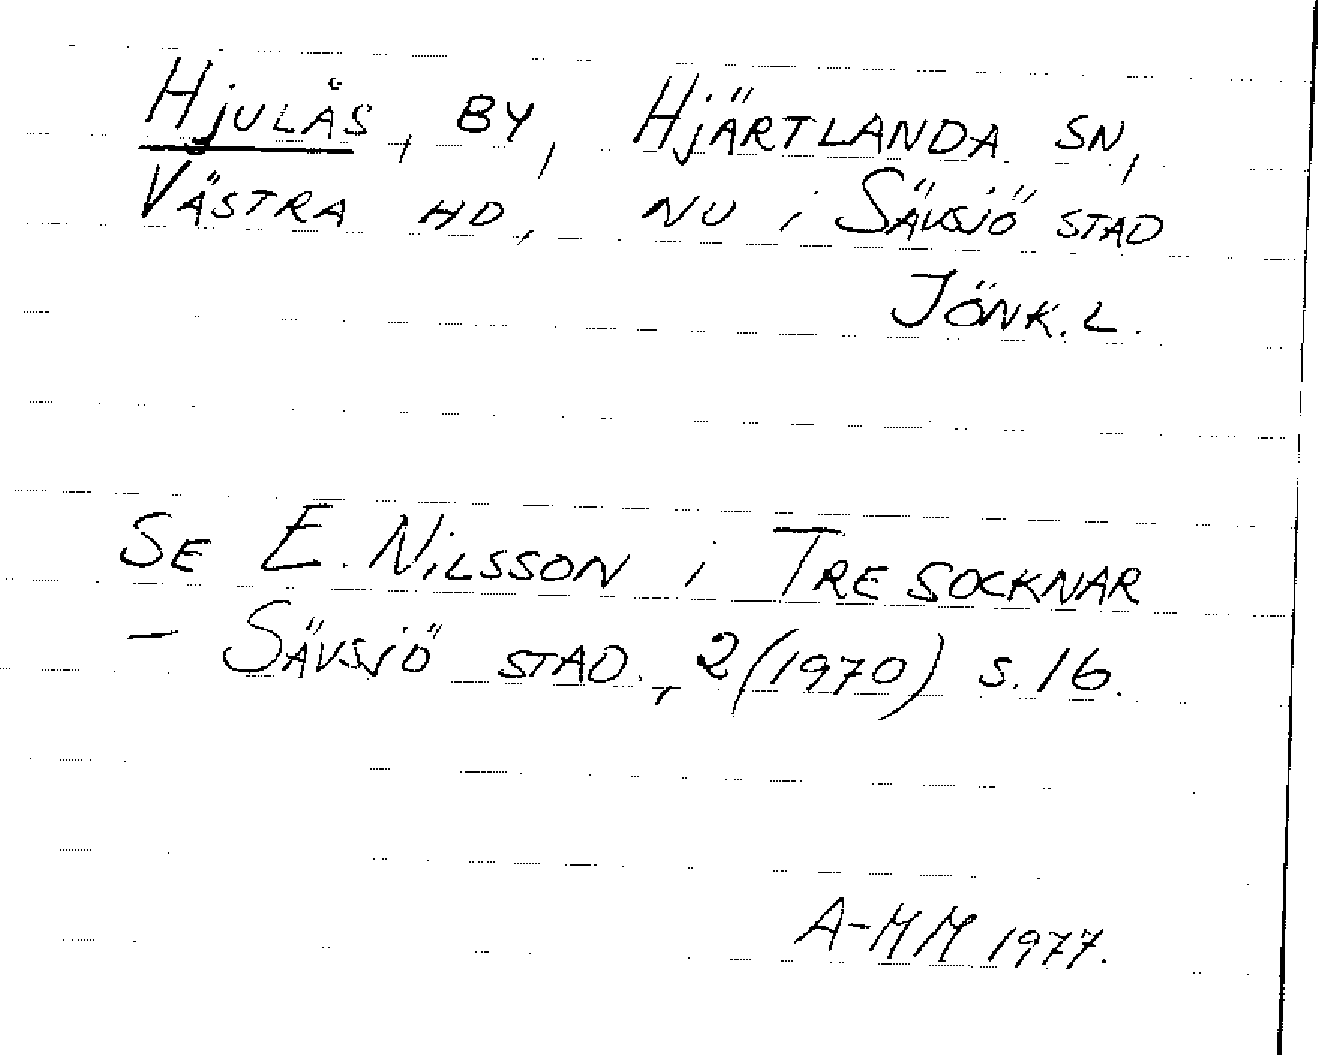 Hjulås, by, Hjärtlanda sn,
Västra hd, nu i Sävsjö stad
Jönk. l.
Se E. Nilsson i Tre socknar
– Sävsjö stad., 2 (1970) s. 16.
A-MM 1977.